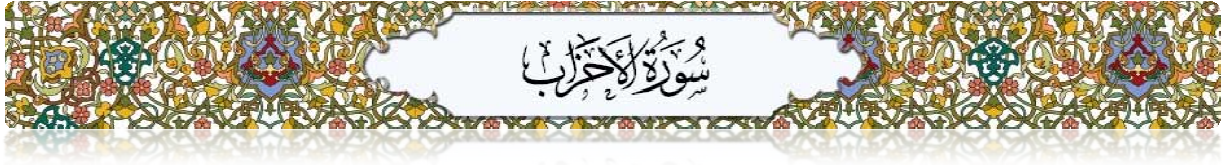 سُورَةُ الأَحْزَاب